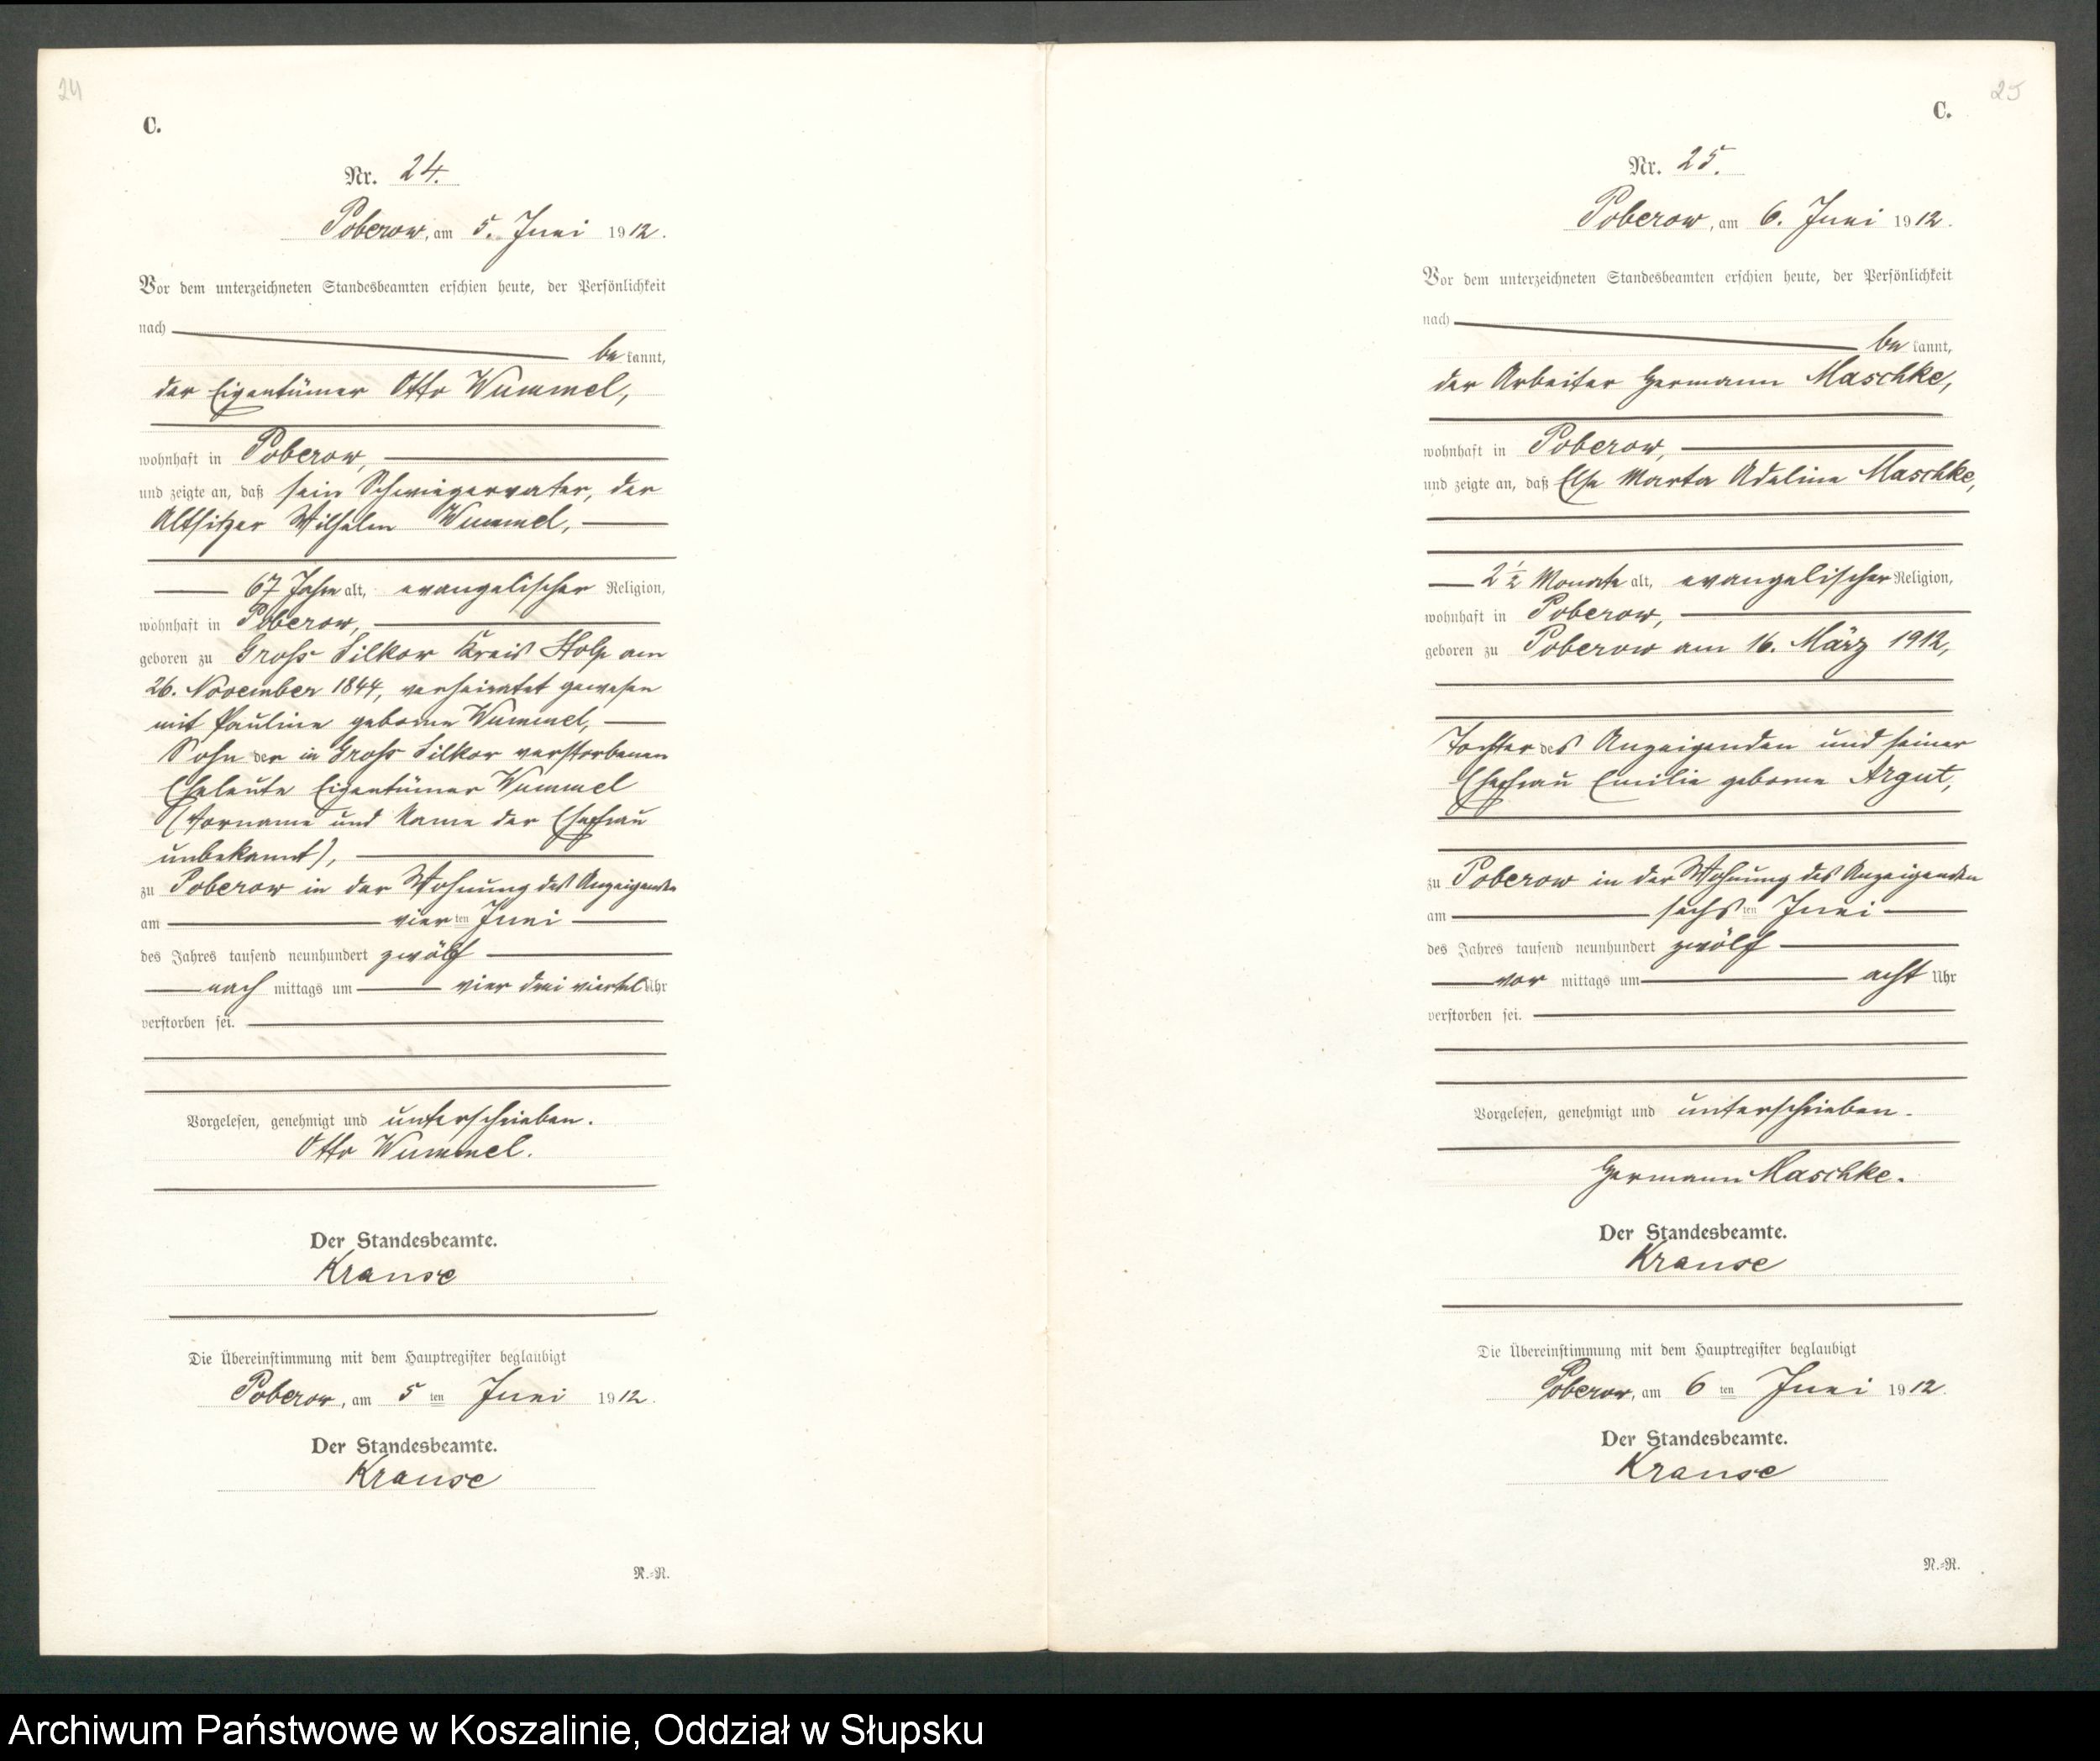 24
C.
Nr. 24.
Poberow, am 5. Juni 1912.
Vor dem unterzeichneten Standesbeamten erschien heute, der Persönlichkeit
nach
be kannt,
der Eigentümer Otto Wummel,
wohnhaft in Poberow,
und zeigte an, daß sein Schwiegervater, der
Altsitzer Wilhelm Wummel,
67 Jahre alt, evangelischer Religion,
wohnhaft in Poberow,
geboren zu Gross Silkow Kreis Stolp am
26. November 1844, verheiratet gewesen
mit Pauline geborne Wummel,
Sohn der in Gross Silkow verstorbenen
Eheleute Eigentümer Wummel
(Vorname und Name der Ehefrau
unbekannt),
zu Poberow in der Wohnung des Anzeigenden
am vier ten Juni
des Jahres tausend neunhundert zwölf
nach mittags um vier drei viertel Uhr
verstorben sei.
Vorgelesen, genehmigt und unterschrieben.
Otto Wummel.
Der Standesbeamte.
Krause
Die Übereinstimmung mit dem Hauptregister beglaubigt
Poberow, am 5 ten Juni 1912.
Der Standesbeamte.
Krause
N.=R.
25
C.
Nr. 25.
Poberow, am 6. Juni 1912.
Vor dem unterzeichneten Standesbeamten erschien heute, der Persönlichkeit
nach
be kannt,
der Arbeiter Hermann Maschke,
wohnhaft in Poberow,
und zeigte an, daß Else Marta Adeline Maschke,
2½ Monate alt, evangelischer Religion,
wohnhaft in Poberow,
geboren zu Poberow am 16. März 1912,
Tochter des Anzeigenden und seiner
Ehefrau Emilie geborne Argut,
zu Poberow in der Wohnung des Anzeigenden
am sechs ten Juni
des Jahres tausend neunhundert zwölf
vor mittags um acht Uhr
verstorben sei.
Vorgelesen, genehmigt und unterschrieben.
Hermann Maschke.
Der Standesbeamte.
Krause
Die Übereinstimmung mit dem Hauptregister beglaubigt
Poberow, am 6 ten Juni 1912.
Der Standesbeamte.
Krause
N.=R.
Archiwum Państwowe w Koszalinie, Oddział w Słupsku